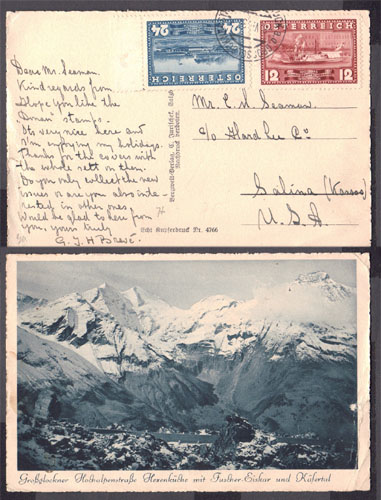 Dear Mr. Seaman
Kind regards from
I hope you like the
stamps.
It's very nice here and
I'm enjoying my holidays.
Thanks for the covers with
the whole sett on them.
Do you only collect the new
issues or are you also inte-
rested in other ones.
Would be glad to hear from
you, yours truly
G. J. H. Brevé.
24 24
ÖSTERREICH
ÖSTERREICH
12 12
Mr. C. H. Seaman.
c/o Hard Lee Co
Salina (Kansas)
U.S.A.
Echt Kupferdruck Nr. 4766
Großglockner Hochalpenstraße Hexenküche mit Fuscher-Eiskar und Käfertal